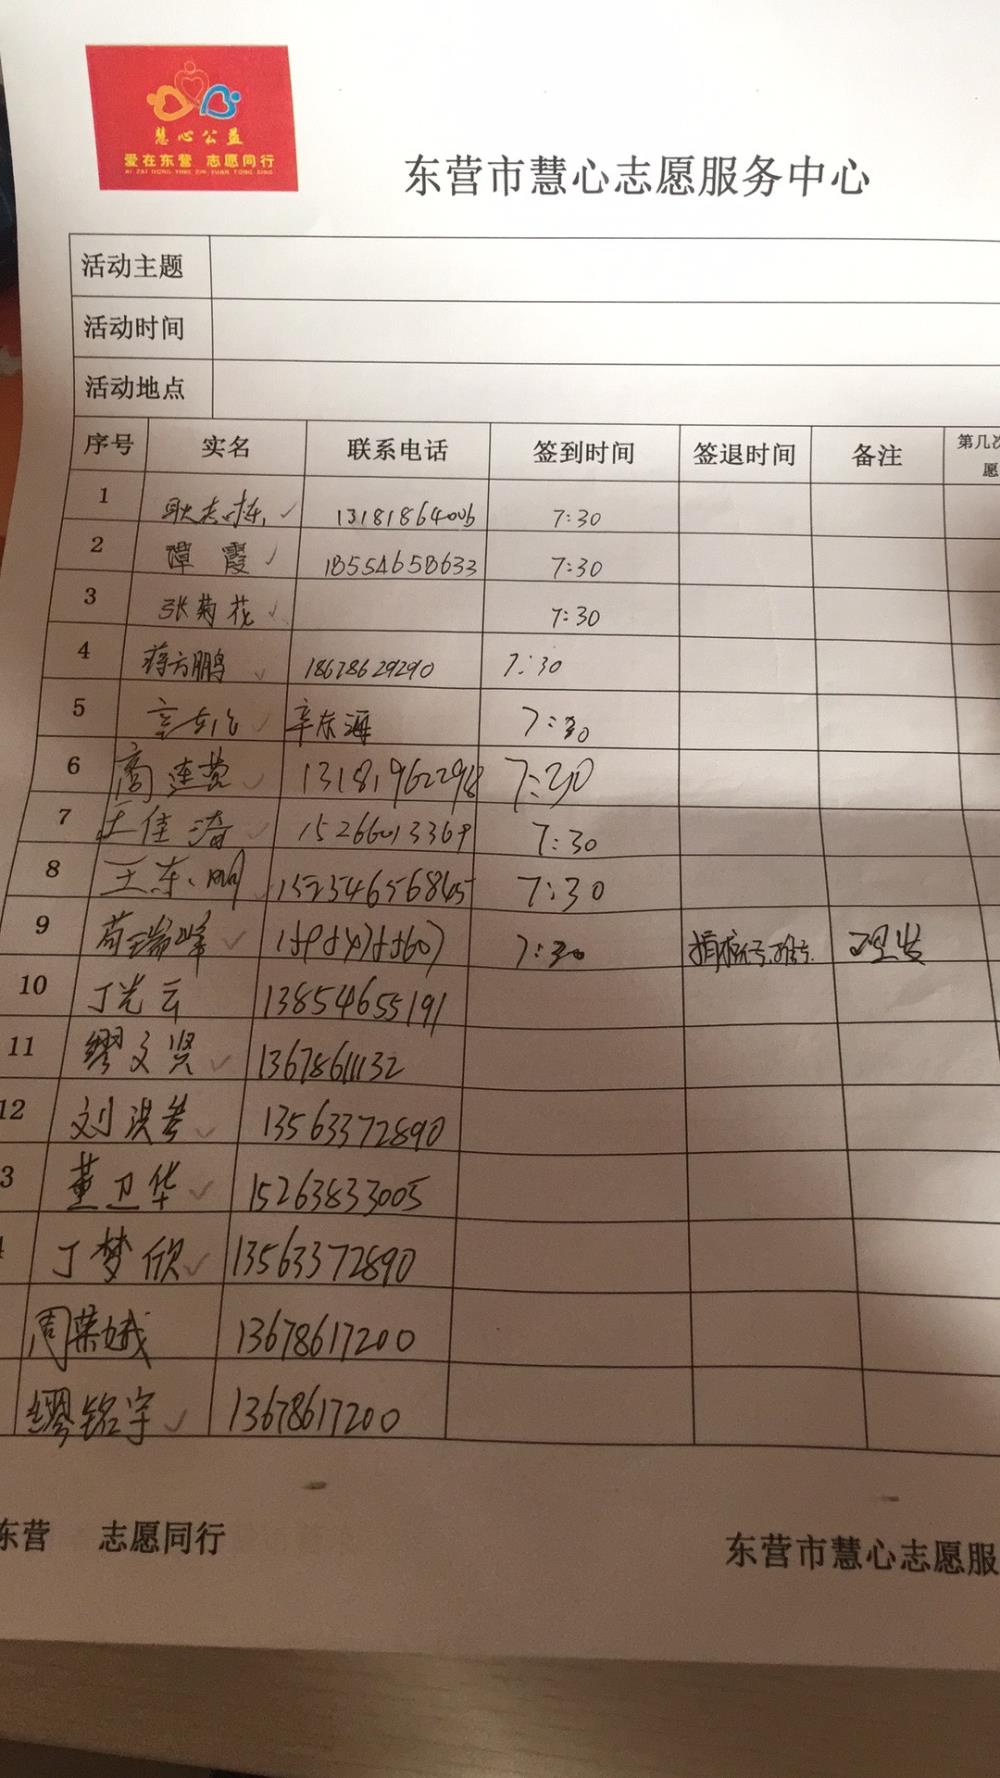 慧心公益
爱在东营 志愿同行
AI ZAI DONG YING ZHI YUAN TONG XING
东营市慧心志愿服务中心
活动主题
活动时间
活动地点
序号 实名 联系电话 签到时间 签退时间 备注 第几次
愿
1 13181864006 7:30
2 谭霞 18554658633 7:30
3 张菊花 7:30
4 蒋方鹏 18678629290 7:30
5 辛东海 7:30
6 商连营 7:30
7 王佳 15266013369 7:30
8 王东明 7:30
9 苟瑞峰 7:30 理发
10 丁光云 13854655191
11 缪文贤 13678611132
12 刘洪 13563372890
3 董卫华 15263833005
丁梦欣 13563372890
周荣娥 13678617200
缪铭宇 13678617200
东营 志愿同行
东营市慧心志愿服